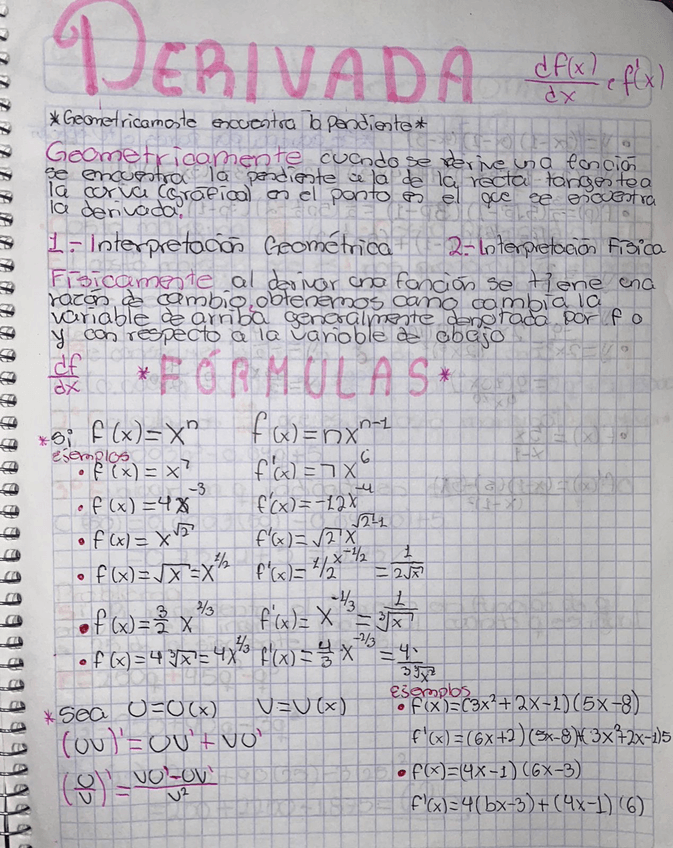 DERIVADA df(x)/dx , f'(x)
*Geometricamente encuentra la pendiente*
Geometricamente cuando se derive una función
se encuentra la pendiente a la de la recta tangente a
la curva (gráfica) en el punto en el que se encuentra
la derivada.
1.- Interpretación Geométrica 2.- Interpretación Física
Físicamente al derivar una función se tiene una
razón de cambio, obtenemos como cambia la
variable de arriba generalmente denotada por f o
y con respecto a la variable de abajo
df/dx *FÓRMULAS*
*si f(x)=xⁿ f'(x)=nxⁿ⁻¹
ejemplos
• f(x)=x⁷ f'(x)=7x⁶
• f(x)=4x⁻³ f'(x)=-12x⁻⁴
• f(x)=x^√2 f'(x)=√2 x^√2-1
• f(x)=√x=x^1/2 f'(x)=1/2 x^-1/2 = 1/2√x
• f(x)=3/2 x^2/3 f'(x)=x^-1/3 = 1/∛x
• f(x)=4∛x=4x^1/3 f'(x)=4/3 x^-2/3 = 4/3∛x²
*Sea U=U(x) V=V(x)
(UV)'=UV'+VU'
(U/V)'=VU'-UV'/V²
ejemplos
• f(x)=(3x²+2x-1)(5x-8)
f'(x)=(6x+2)(5x-8)+(3x²+2x-1)5
• f(x)=(4x-1)(6x-3)
f'(x)=4(6x-3)+(4x-1)(6)